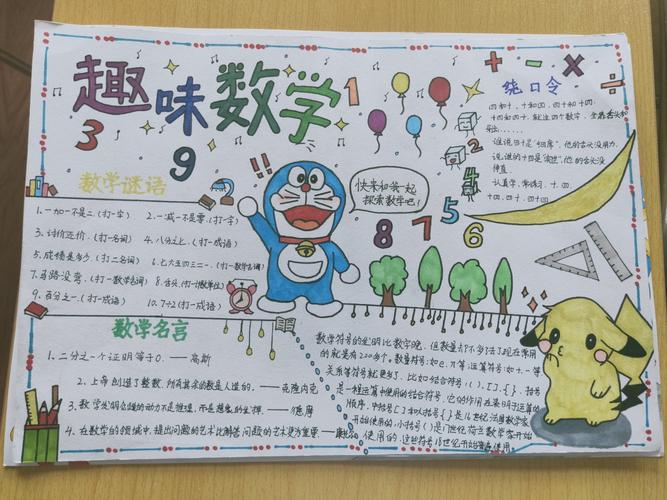 趣味数学
1
3
9
+ - × ÷
2
4
5
8 7 6
绕口令
四和十,十和四,四十和十四,
十四和四十,就这四个数字,
谁说四十是
他的舌头没用力,
谁说的十四是
他的舌头没
伸直,
认真学,常练习,十、四、
十四、四十、四十四
!!
快来和我一起
探索数学吧!
数学谜语
1.一加一不是二.(打一字)
2.一减一不是零.(打一字)
3.讨价还价.(打一名词)
4.八分之七.(打一成语)
5.成绩是多少.(打二名词)
6.七大五四三二一.(打一数学名词)
7.马路没弯.(打一数学名词)
8.舌头.(打一计数单位)
9.百分之一.(打一成语)
10.7÷2(打一成语)
数学名言
1.二分之一个证明等于0.——高斯
2.上帝创造了整数,所有其余的数是人造的.——克隆内克
3.数学发明创造的动力不是推理,而是想象力的发挥.——德摩
4.在数学的领域中,提出问题的艺术比解答问题的艺术更为重要.——康托尔
数学符号的发明比数字晚,但数量却不少了去了现在常用
的就是有200多个.数量符号:如e.π等;运算符号:如+.-等
关系等符号就更多了.比如结合符号( ).[ ].{ }.括号
是一种运算中使用的结合符号,它的作用在表明于运算的
顺序,中括号[ ]和大括号{ }是16世纪法国数学家
开始使用的,小括号( )是17世纪荷兰数学家开始
使用的.这些符号18世纪开始普遍使用.